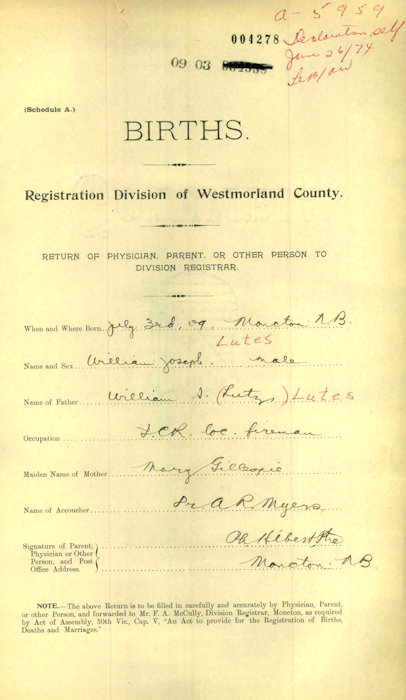 a-5959
004278 Declaration self
June 26/74
09 03
(Schedule A.)
BIRTHS.
Registration Division of Westmorland County.
RETURN OF PHYSICIAN, PARENT, OR OTHER PERSON TO
DIVISION REGISTRAR.
When and Where Born July 3rd, 09, Moncton N.B.
Lutes
Name and Sex William Joseph, male
Name of Father William S. (Lutzs) Lutes
Occupation I.C.R. loc. fireman
Maiden Name of Mother Mary Gillespie
Name of Accoucher Dr A R Myers
Signature of Parent, Physician or Other Person, and Post Office Address. Ph Hebert
Moncton N.B.
NOTE.—The above Return is to be filled in carefully and accurately by Physician, Parent,
or other Person, and forwarded to Mr. F. A. McCully, Division Registrar, Moncton, as required
by Act of Assembly, 50th Vic., Cap. V, "An Act to provide for the Registration of Births,
Deaths and Marriages."